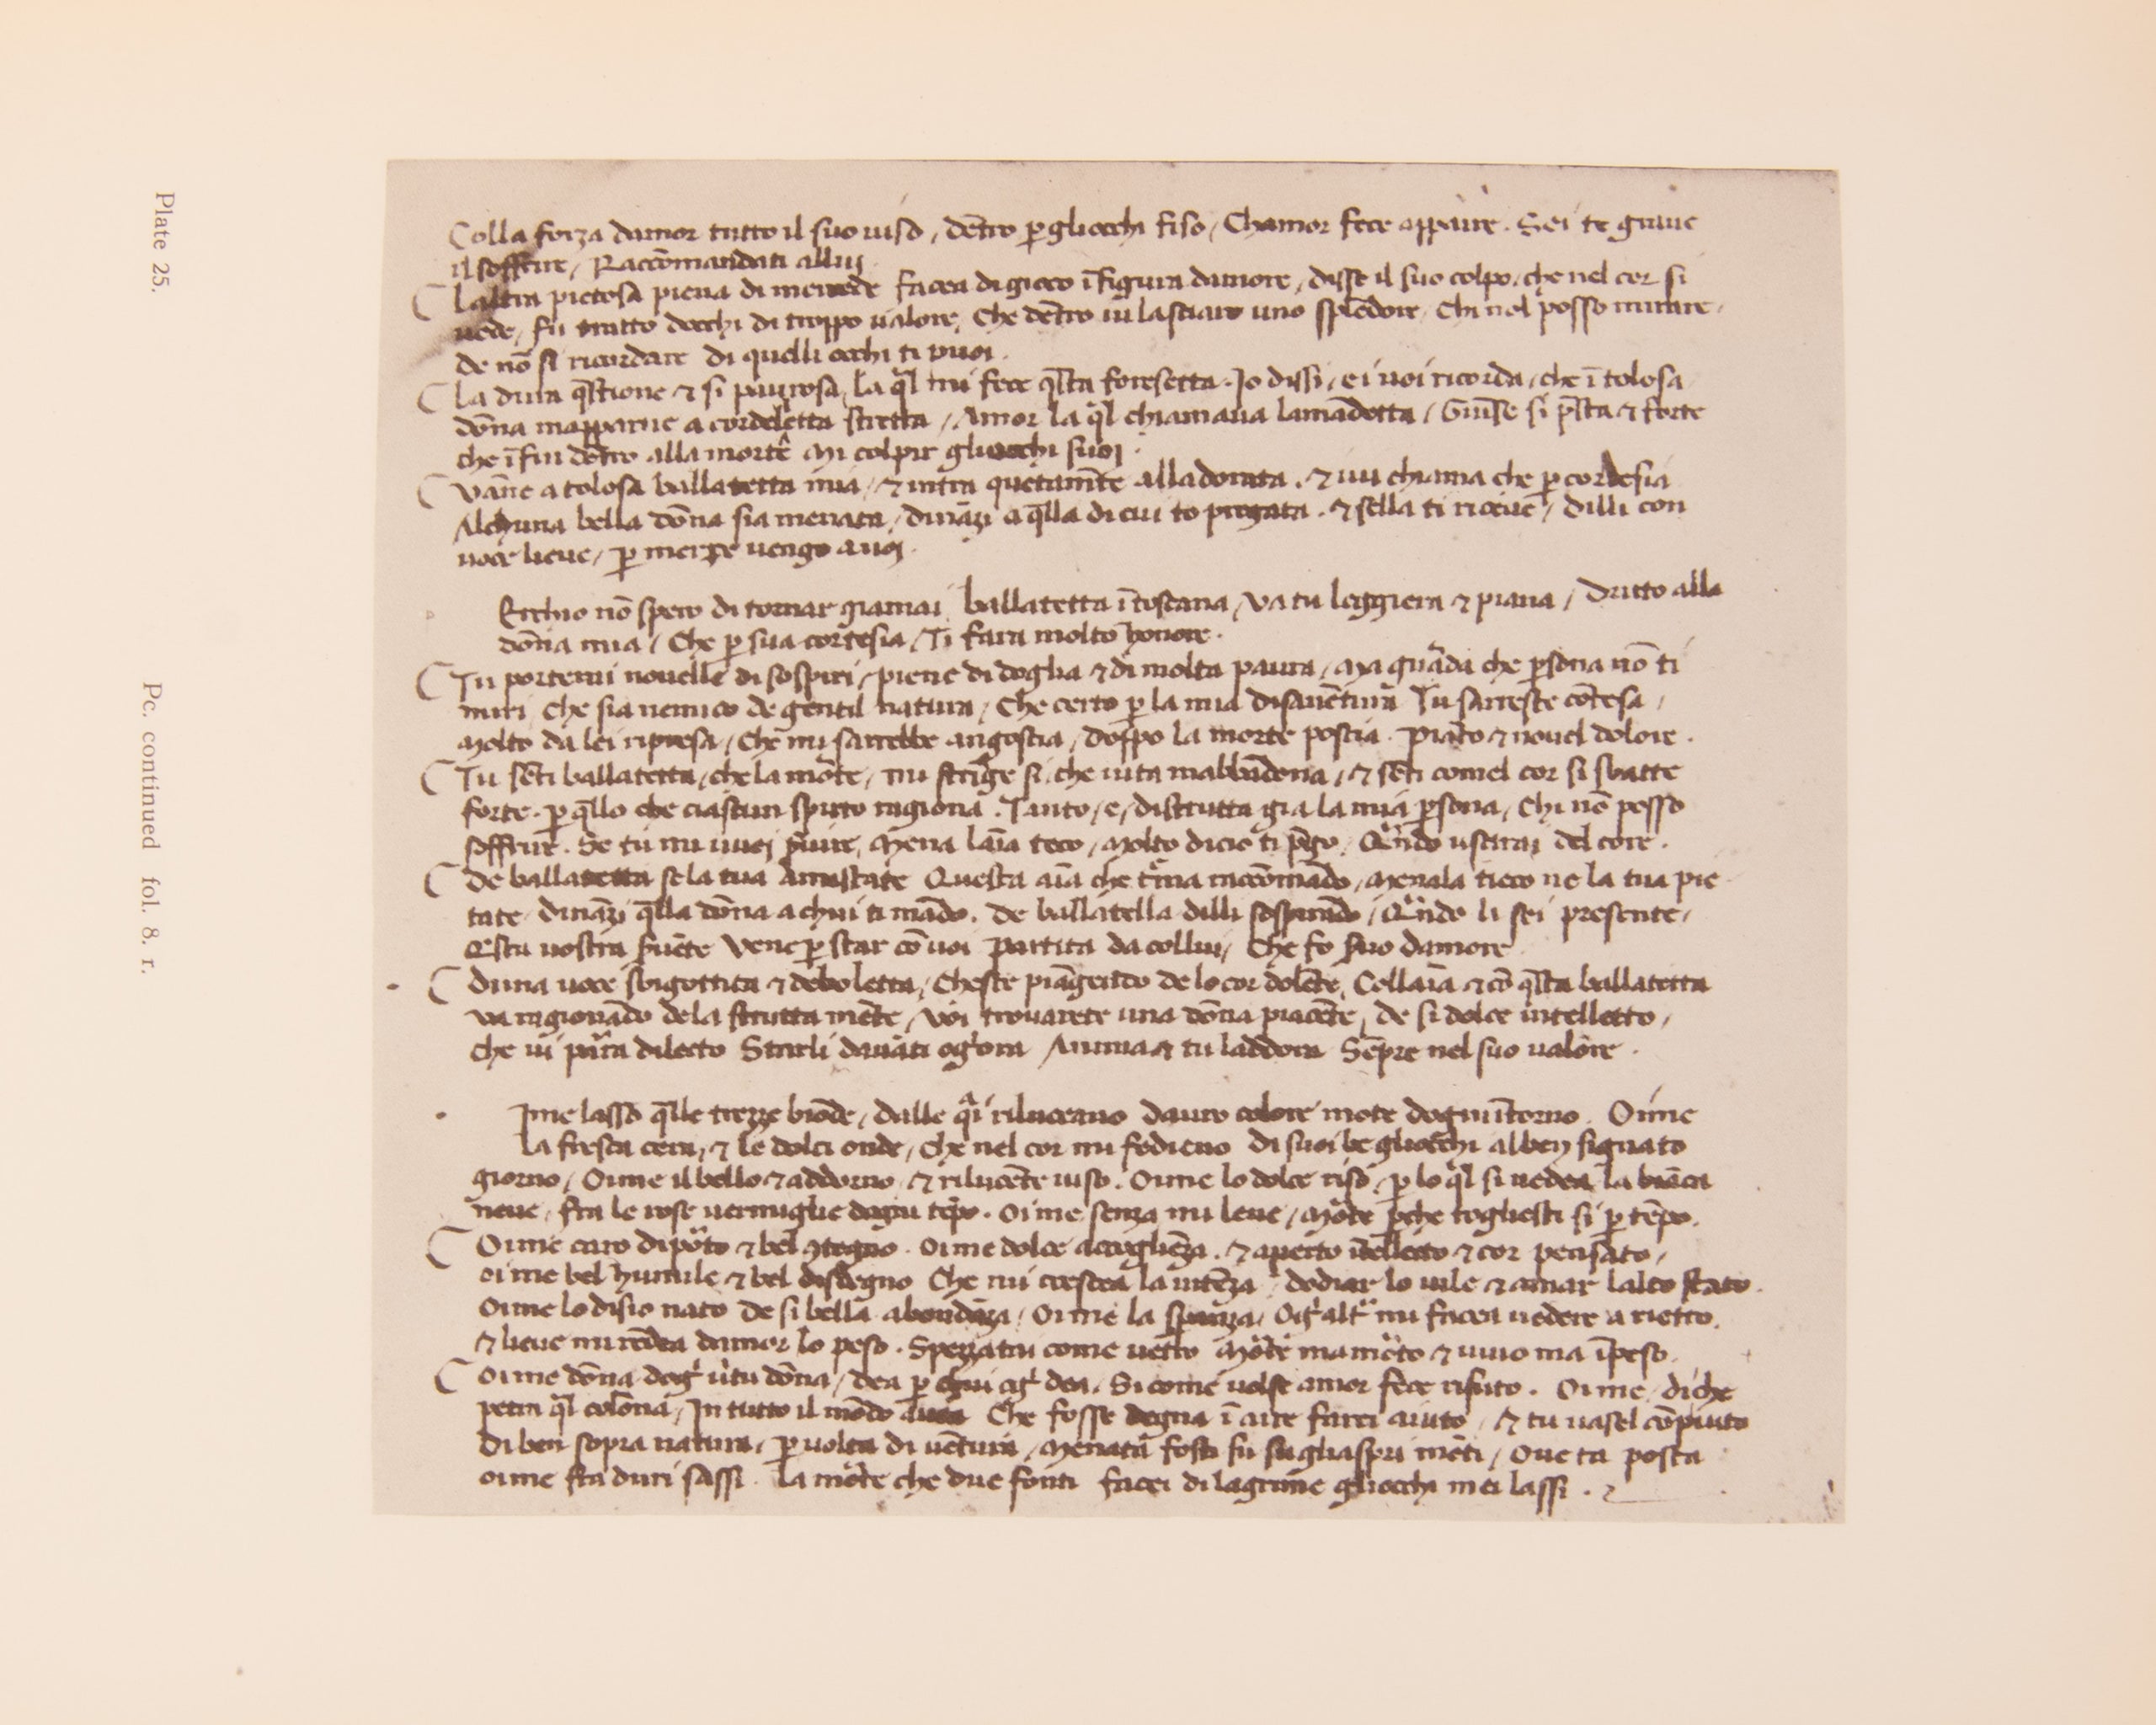 Plate 25.
Pc. continued fol. 8. r.
Colla forza damor tutto il suo uiso / dētro p̲ gliocchi fiso / Chamor fece apparire . Sei te graue
il soffrire / Raccōmandati allui
Laltra pietosa piena di merzede facea di gioco ī figura damore / disse il suo colpo / che nel cor si
uede / fu tratto docchi di troppo ualore / Che dētro ui lasciaro uno splēdore / Chi nol posso mirare /
de nō si ricordare di quelli occhi ti puoi .
La dura q̄stione & si paurosa / la q̄l mi fece q̄sta foresetta . Io dissi / ei uoi ricorda / che ī tolosa
dōna mapparue a cordeletta stretta / Amor la q̄l chiamaua lamādetta / Giūse si p̄sta & forte
che īfin dētro alla morte Mi colpir gliocchi suoi .
Vāne a tolosa ballatetta mia / & intra quetamēte alla dorata . & iui chiama che p̲ cortesia
Alchuna bella dōna sia menata / dināzi a q̄lla di cui to pregata . & sella ti riceue / dilli con
uoce lieue / p̲ merze uengo a uoi .
Ecchio nō spero di tornar giamai ballatetta ī toscana / va tu leggiera & piana / dritto alla
dōna mia / Che p̲ sua cortesia / Ti fara molto honore .
Tu porterai nouelle di sospiri / piene di doglia & di molta paura / Ma guāda che p̲sona nō ti
miri / che sia nemico de gentil natura / Che certo p̲ la mia disauētura Tu sarreste cōtesa /
Molto da lei ripresa / Che mi sarrebbe angoscia / doppo la morte poscia . piāto & nouel dolore .
Tu sēti ballatetta / che la morte / mi strīge si / che uita mabbādona / & sēti comel cor si sbatte
forte . p̲ q̄llo che ciascun spirito ragiona . Tanto / e / distrutta gia la mia p̲sona / Chi nō posso
soffrire . Se tu mi uuoi s̄uire / Mena laīa teco / Molto di cio ti p̄go / Q̄ndo uscirai del core .
De ballatetta se la tua amistate Questa aīa che trema raccōmādo / Menala tieco ne la tua pie
tate / dināzi q̄lla dōna a chui ti mādo . De ballatella dilli sospirādo / Q̄ndo li sei presente /
Q̄sta uostra s̄uēte Vene p̲ star cō uoi partita da collui / Che fo s̄uo damore
Duna uoce sbigottita & deboletta / Cheste piāgendo de lo cor dolēte / Collaīa & cō q̄sta ballatetta
va ragionādo dela strutta mēte / Voi trouarete una dōna piacēte / de si dolce intelletto /
che ui parra dilecto Starli dauāti ogora Anima & tu laddora Sēpre nel suo ualore .
Ime lasso q̄lle trezze biōde / dalle q̄i riluceano dauro colore mote dogni ītorno . Oime
la fresca cera / & le dolci onde / Che nel cor mi fedieno di suoi be gliocchi al ben signato
giorno / Oime il bello & addorno / & rilucēte uiso . Oime lo dolce riso / p̲ lo q̄l si uedea la biāca
neue / fra le rose uermiglie dogni tēpo . Oime senza mi leue / Morte p̲che togliesti si p̲ tēpo .
Oime caro diporto & bel cōtegno . Oime dolce accoglienza . & aperto ītellecto & cor pensato /
oime bel humile & bel disdegno Che mi crescea la intēza dodiar lo uile & amar lalto stato .
Oime lo disio nato de si bella abondāza / Oime la speranza / Og̍ altr̍ mi facea uedere a rietro .
& lieue mi rēdea damor lo peso . Spezzatai come uetro Morte ma morto & uiuo ma īpeso .
Oime dōna dog̍ ūtu dōna / dea p̲ chui og̍ dea / Si come uolse amor fece rifiuto . Oime / di che
petra q̄l colōna / In tutto il mōdo auea Che fosse degna ī aire farti aiuto / & tu uasel cōpiuto
di ben sopra natura / p̲ uolta di uētura / Menata fosti su su gliaspri mōti / Oue ta posta
oime fra duri sassi . La morte che due fonti facei di lagrime gliocchi mei lassi .